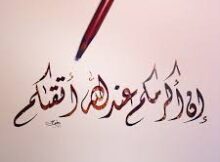 إن أكرمكم عند الله أتقىٰكم